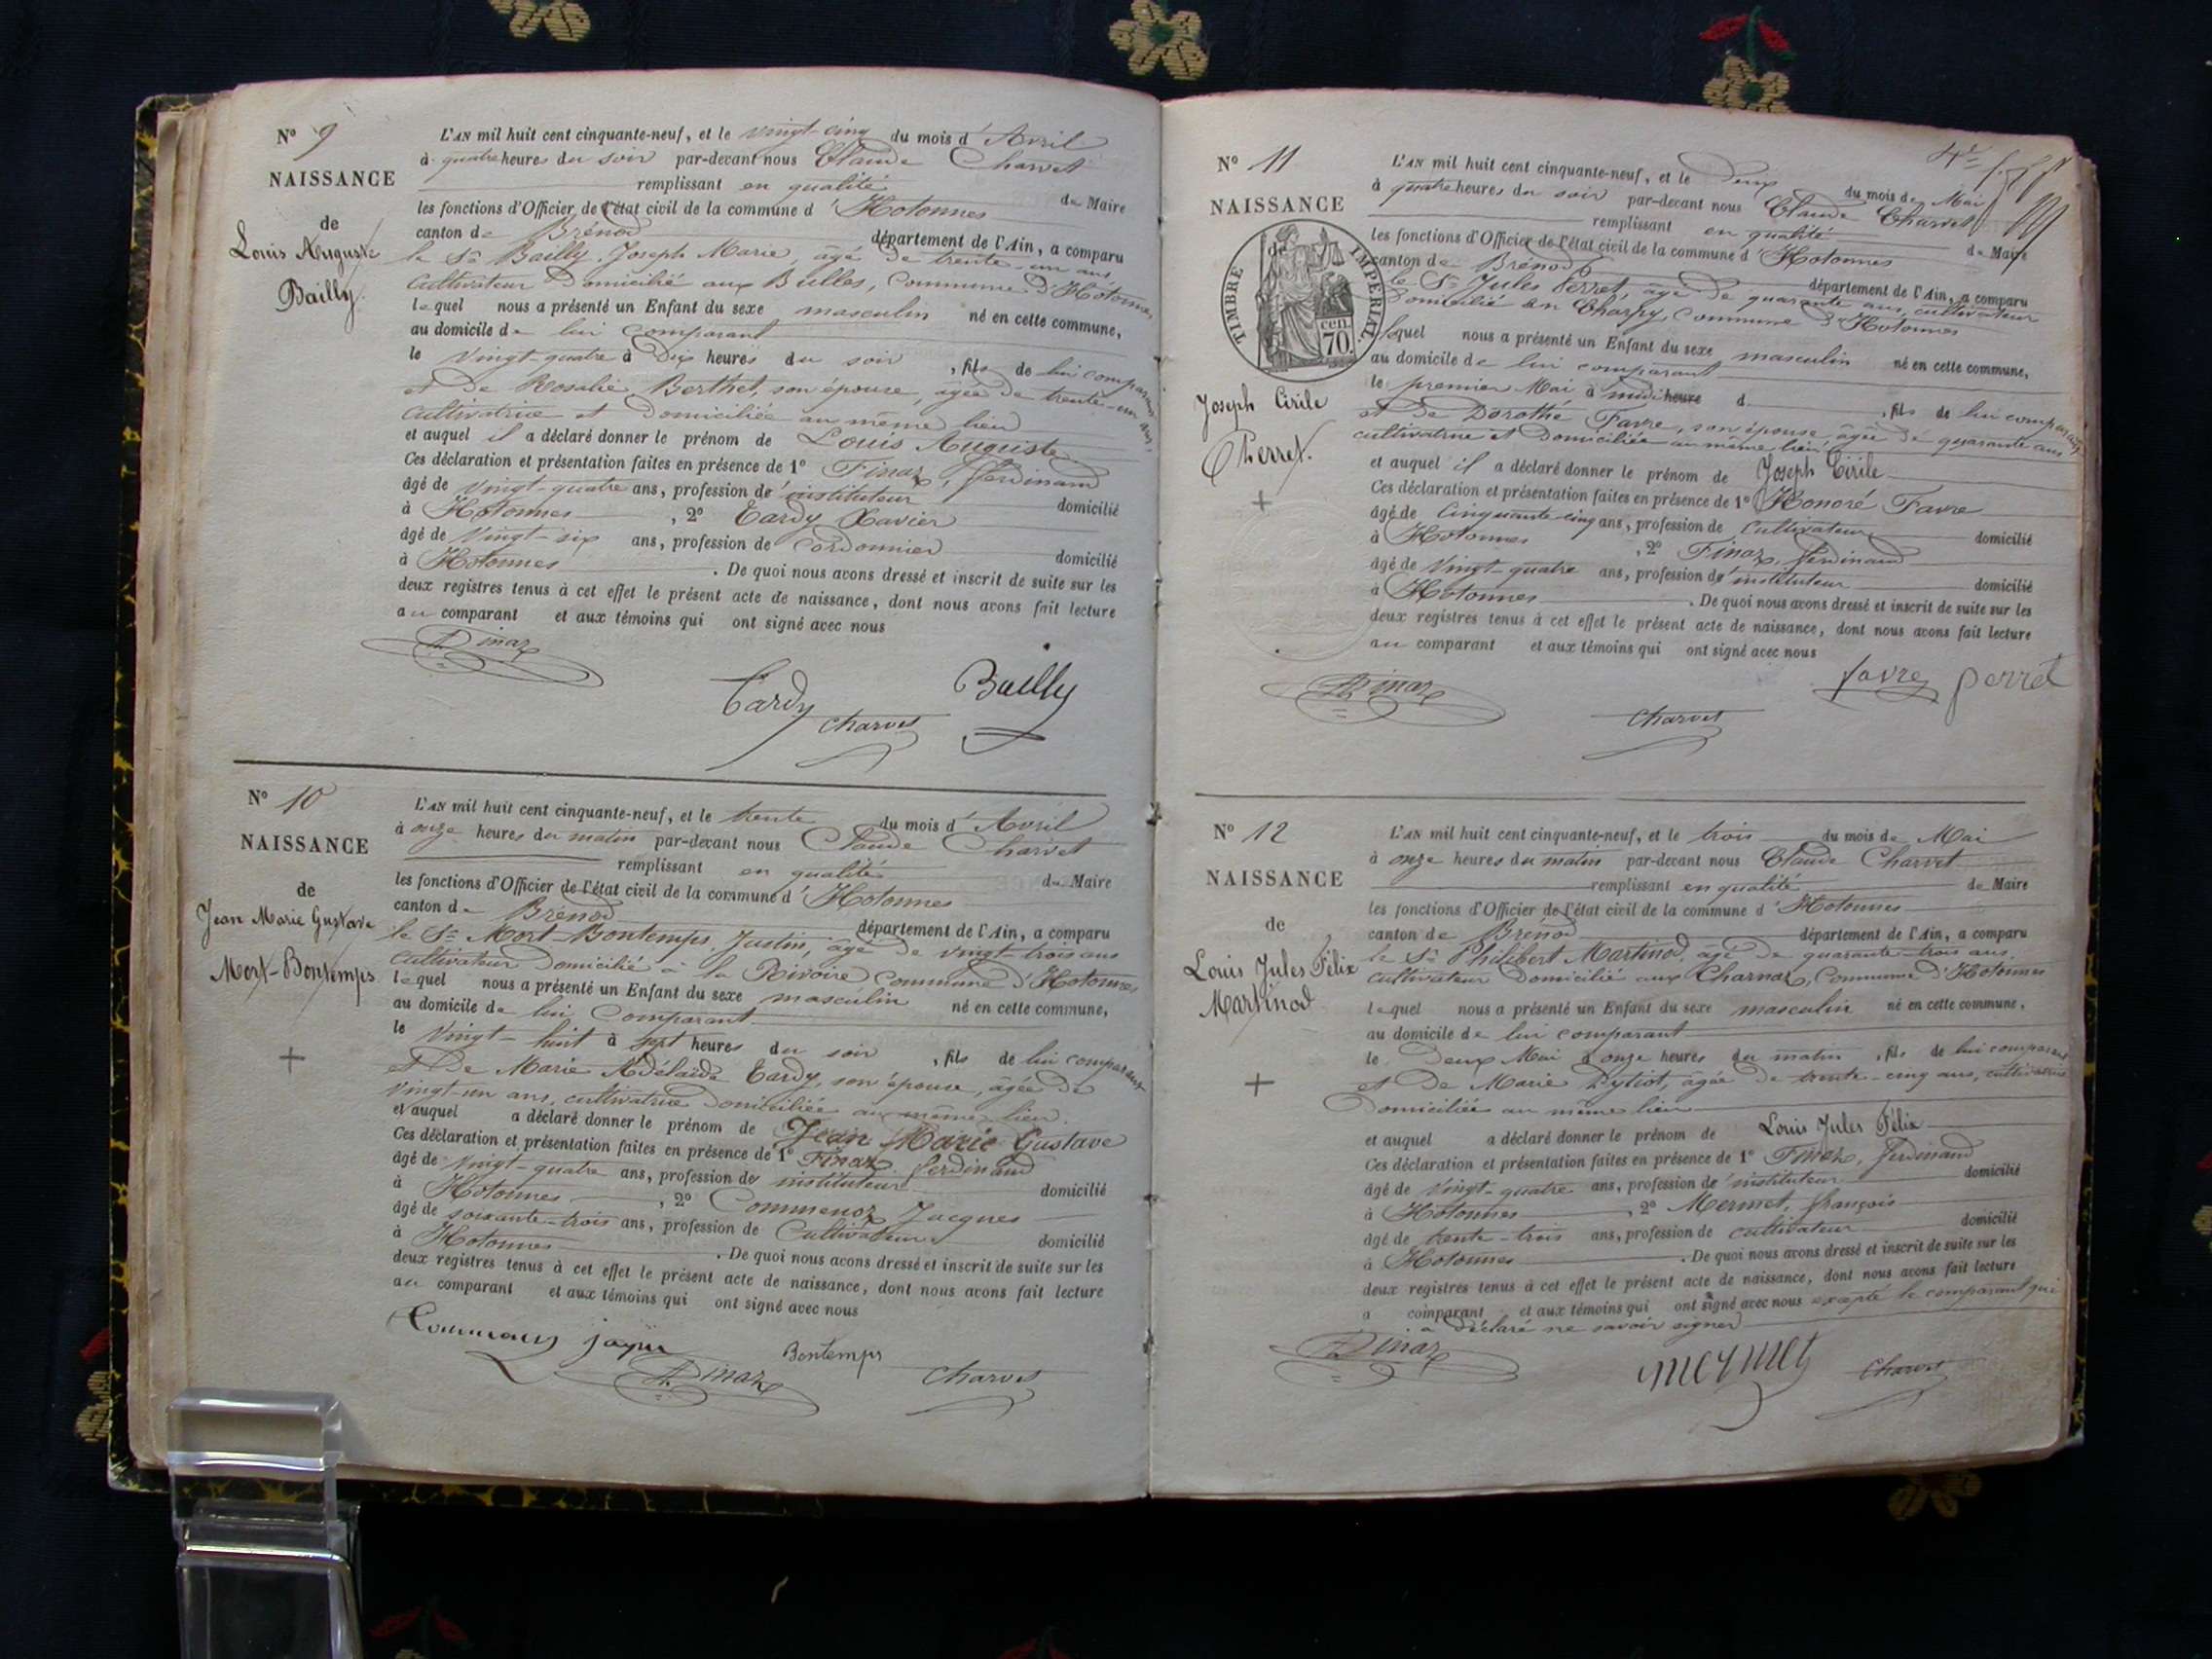 N° 9
NAISSANCE
de
Louis Auguste
Bailly.
L'AN mil huit cent cinquante-neuf, et le vingt-cinq du mois d'Avril
à quatre heures du soir par-devant nous Claude Charvet
remplissant en qualité de Maire
les fonctions d'Officier de l'état civil de la commune d'Hotonnes
canton de Brénod département de l'Ain, a comparu
le Sr Bailly Joseph Marie, âgé de trente-un ans,
cultivateur domicilié aux Bulles, commune d'Hotonnes
lequel nous a présenté un Enfant du sexe masculin né en cette commune,
au domicile de lui comparant
le vingt-quatre à dix heures du soir, fils de lui comparant
et de Rosalie Berthet, son épouse, âgée de trente-un ans,
cultivatrice et domiciliée au même lieu
et auquel il a déclaré donner le prénom de Louis Auguste
Ces déclaration et présentation faites en présence de 1° Finaz, Ferdinand
âgé de vingt-quatre ans, profession d'instituteur domicilié
à Hotonnes, 2° Tardy Xavier
âgé de vingt-six ans, profession de cordonnier domicilié
à Hotonnes. De quoi nous avons dressé et inscrit de suite sur les
deux registres tenus à cet effet le présent acte de naissance, dont nous avons fait lecture
au comparant et aux témoins qui ont signé avec nous
Finaz
Tardy Charvet Bailly
N° 10
NAISSANCE
de
Jean Marie Gustave
Mort-Bontemps.
L'AN mil huit cent cinquante-neuf, et le trente du mois d'Avril
à onze heures du matin par-devant nous Claude Charvet
remplissant en qualité de Maire
les fonctions d'Officier de l'état civil de la commune d'Hotonnes
canton de Brénod département de l'Ain, a comparu
le Sr Mort-Bontemps, Justin, âgé de vingt-trois ans
cultivateur domicilié à la Rivoire commune d'Hotonnes
lequel nous a présenté un Enfant du sexe masculin né en cette commune,
au domicile de lui comparant
le vingt-huit à sept heures du soir, fils de lui comparant
et de Marie Adélaïde Tardy, son épouse, âgée de
vingt-un ans, cultivatrice domiciliée au même lieu.
et auquel a déclaré donner le prénom de Jean Marie Gustave
Ces déclaration et présentation faites en présence de 1° Finaz Ferdinand
âgé de vingt-quatre ans, profession d'instituteur domicilié
à Hotonnes, 2° Commenoz Jacques
âgé de soixante-trois ans, profession de cultivateur domicilié
à Hotonnes. De quoi nous avons dressé et inscrit de suite sur les
deux registres tenus à cet effet le présent acte de naissance, dont nous avons fait lecture
au comparant et aux témoins qui ont signé avec nous
Finaz Bontemps Charvet
N° 11
NAISSANCE
de
TIMBRE IMPERIAL.
cen.
70.
Joseph Cirile
Perret.
L'AN mil huit cent cinquante-neuf, et le deux du mois de Mai
à quatre heures du soir par-devant nous Claude Charvet
remplissant en qualité de Maire
les fonctions d'Officier de l'état civil de la commune d'Hotonnes
canton de Brénod département de l'Ain, a comparu
le Sr Jules Perret, âgé de quarante ans, cultivateur
domicilié en Charpy, commune d'Hotonnes
lequel nous a présenté un Enfant du sexe masculin né en cette commune,
au domicile de lui comparant
le premier Mai, à midi heure d, fils de lui comparant
et de Dorothé Favre, son épouse âgée de quarante ans
cultivatrice et domiciliée au même lieu
et auquel il a déclaré donner le prénom de Joseph Cirile
Ces déclaration et présentation faites en présence de 1° Honoré Favre
âgé de cinquante cinq ans, profession de cultivateur domicilié
à Hotonnes, 2° Finaz, Ferdinand
âgé de vingt-quatre ans, profession d'instituteur domicilié
à Hotonnes. De quoi nous avons dressé et inscrit de suite sur les
deux registres tenus à cet effet le présent acte de naissance, dont nous avons fait lecture
au comparant et aux témoins qui ont signé avec nous
Finaz Charvet favre perret
N° 12
NAISSANCE
de
Louis Jules Félix
Martinod
L'AN mil huit cent cinquante-neuf, et le trois du mois de Mai
à onze heures du matin par-devant nous Claude Charvet
remplissant en qualité de Maire
les fonctions d'Officier de l'état civil de la commune d'Hotonnes
canton de Brénod département de l'Ain, a comparu
le Sr Philibert Martinod, âgé de quarante-trois ans,
cultivateur domicilié aux Charnoz, commune d'Hotonnes
lequel nous a présenté un Enfant du sexe masculin né en cette commune,
au domicile de lui comparant
le deux Mai à onze heures du matin, fils de lui comparant
et de Marie Pytiot, âgée de trente-cinq ans, cultivatrice
domiciliée au même lieu
et auquel a déclaré donner le prénom de Louis Jules Félix
Ces déclaration et présentation faites en présence de 1° Finaz, Ferdinand
âgé de vingt-quatre ans, profession d'instituteur domicilié
à Hotonnes, 2° Mermet, françois
âgé de trente-trois ans, profession de cultivateur domicilié
à Hotonnes. De quoi nous avons dressé et inscrit de suite sur les
deux registres tenus à cet effet le présent acte de naissance, dont nous avons fait lecture
a comparant et aux témoins qui ont signé avec nous excepté le comparant qui
a déclaré ne savoir signer
Finaz mermet Charvet